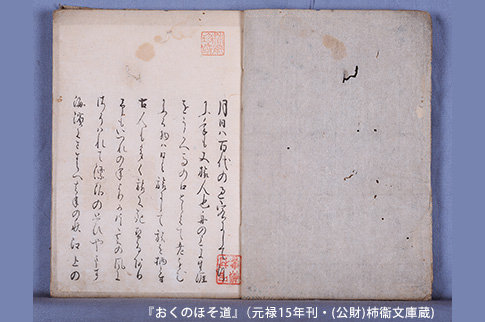 月日ハ百代の過客にして行か
ふ年も又旅人也舟の上に生涯
をうかへ馬の口とらえて老をむ
かふる物ハ日々旅にして旅を栖とす
古人も多く旅に死せるあり
予もいつれの年よりか片雲の風に
さそハれて漂泊の思ひやます
海濱にさすらへ去年の秋江上の
『おくのほそ道』（元禄15年刊・(公財)柿衞文庫蔵)